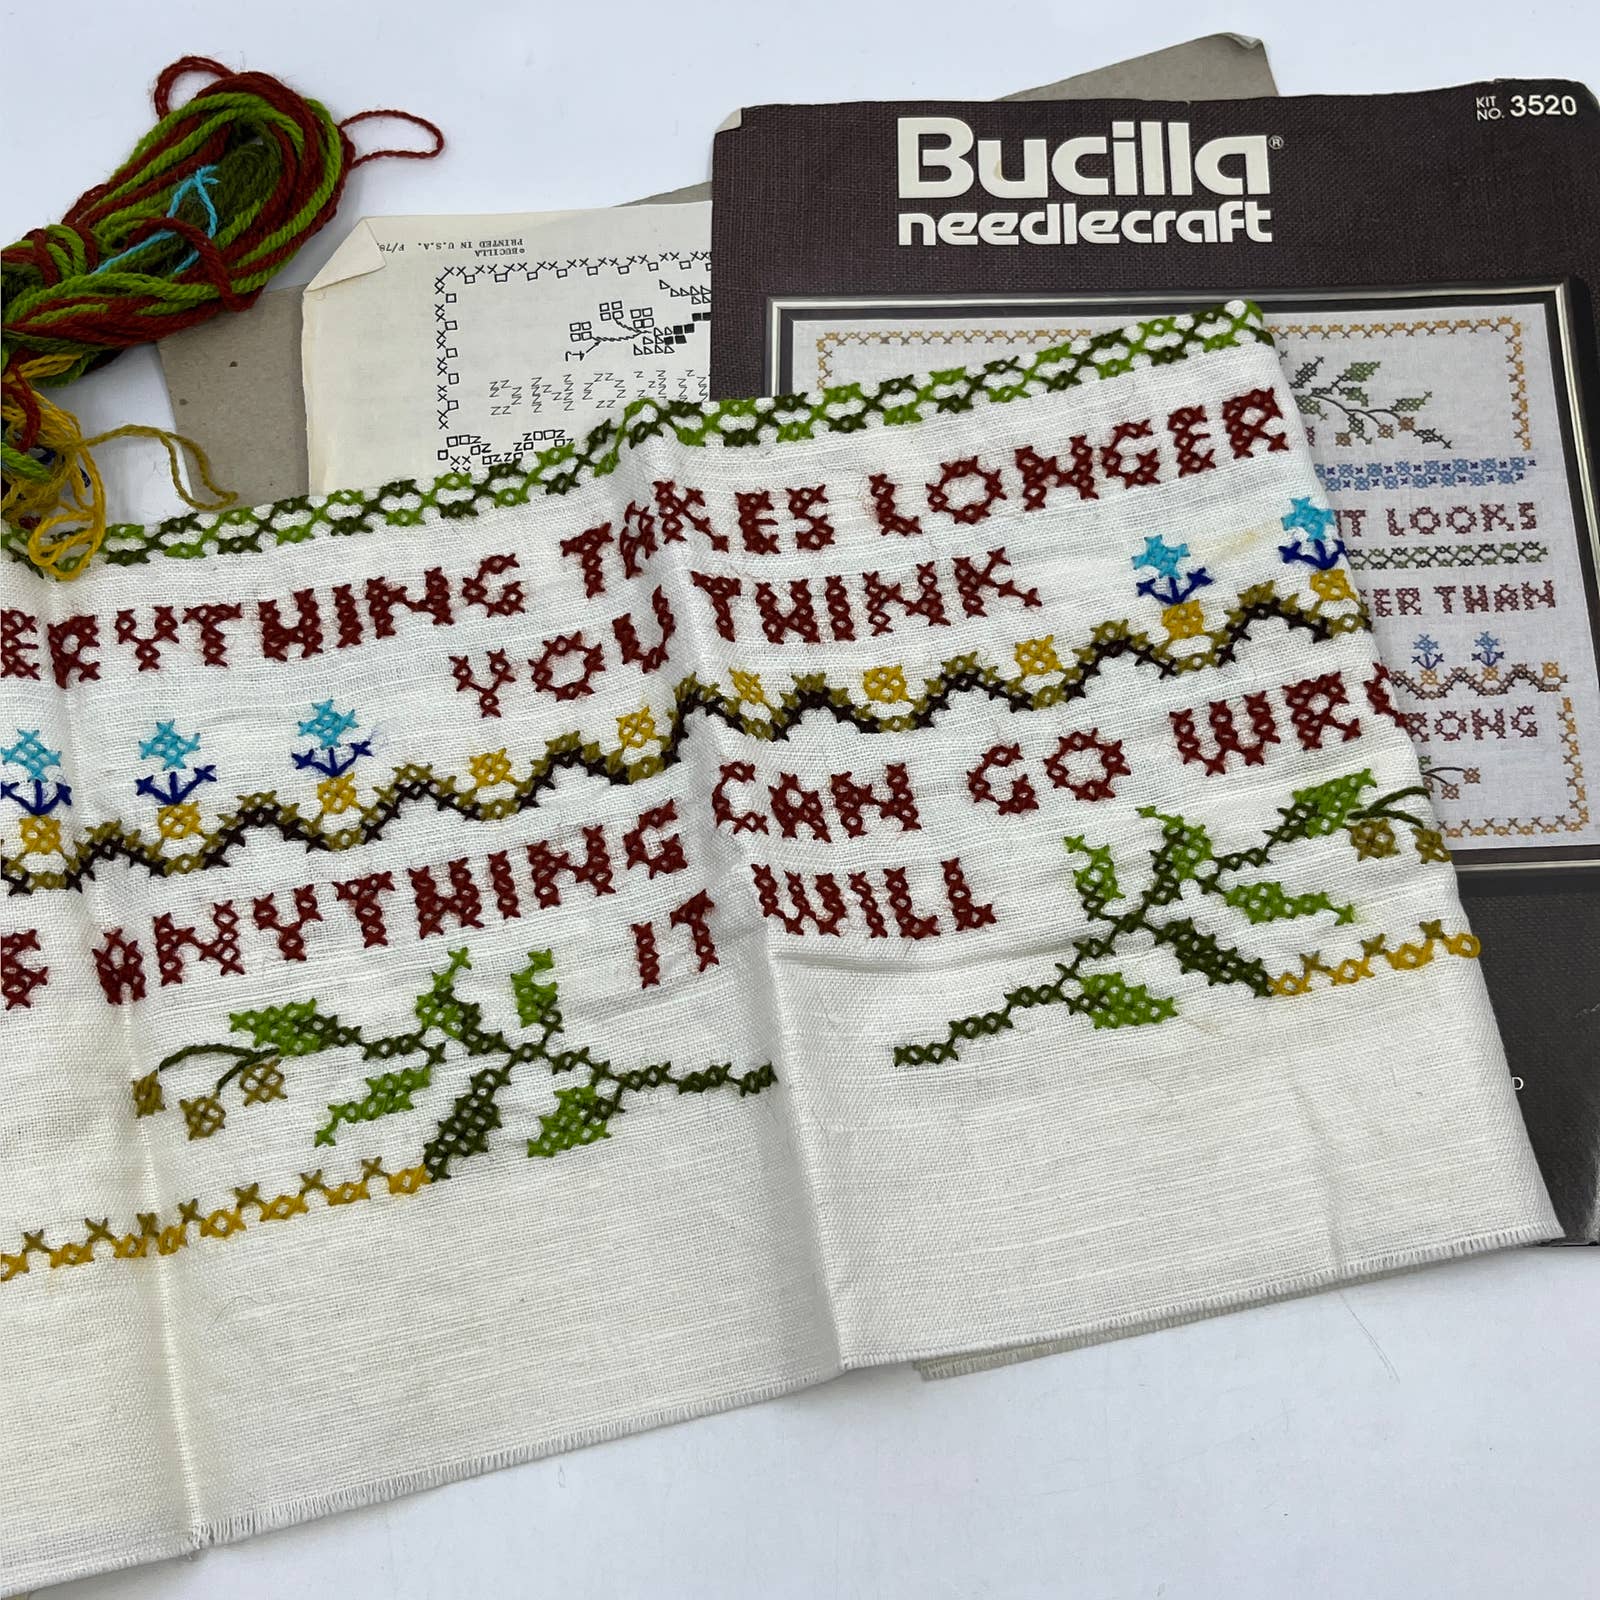 KIT NO. 3520
Bucilla®
needlecraft
©BUCILLA
PRINTED IN U.S.A.
T LOOKS
ER THAN
RONG
ERYTHING TAKES LONGER
YOU THINK
ANYTHING CAN GO WR
IT WILL